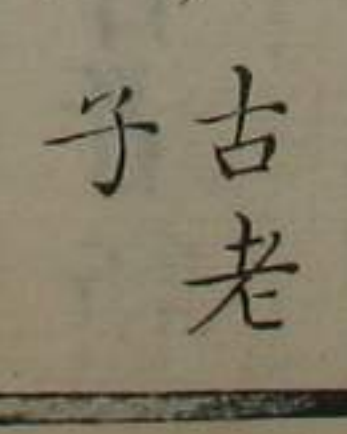 古老
子